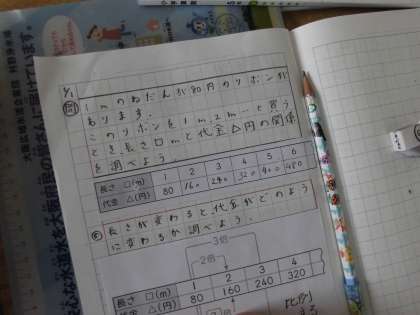 9/1
問 1mのねだんが80円のリボンが
あります。
このリボンを1m、2m…と買う
とき、長さ□mと代金△円の関係
を調べよう。
長さ □(m) 1 2 3 4 5 6
代金 △(円) 80 160 240 320 400 480
め 長さが変わると、代金がどのよう
に変わるか調べよう。
3倍
2倍
長さ □(m) 1 2 3 4
代金 △(円) 80 160 240 320